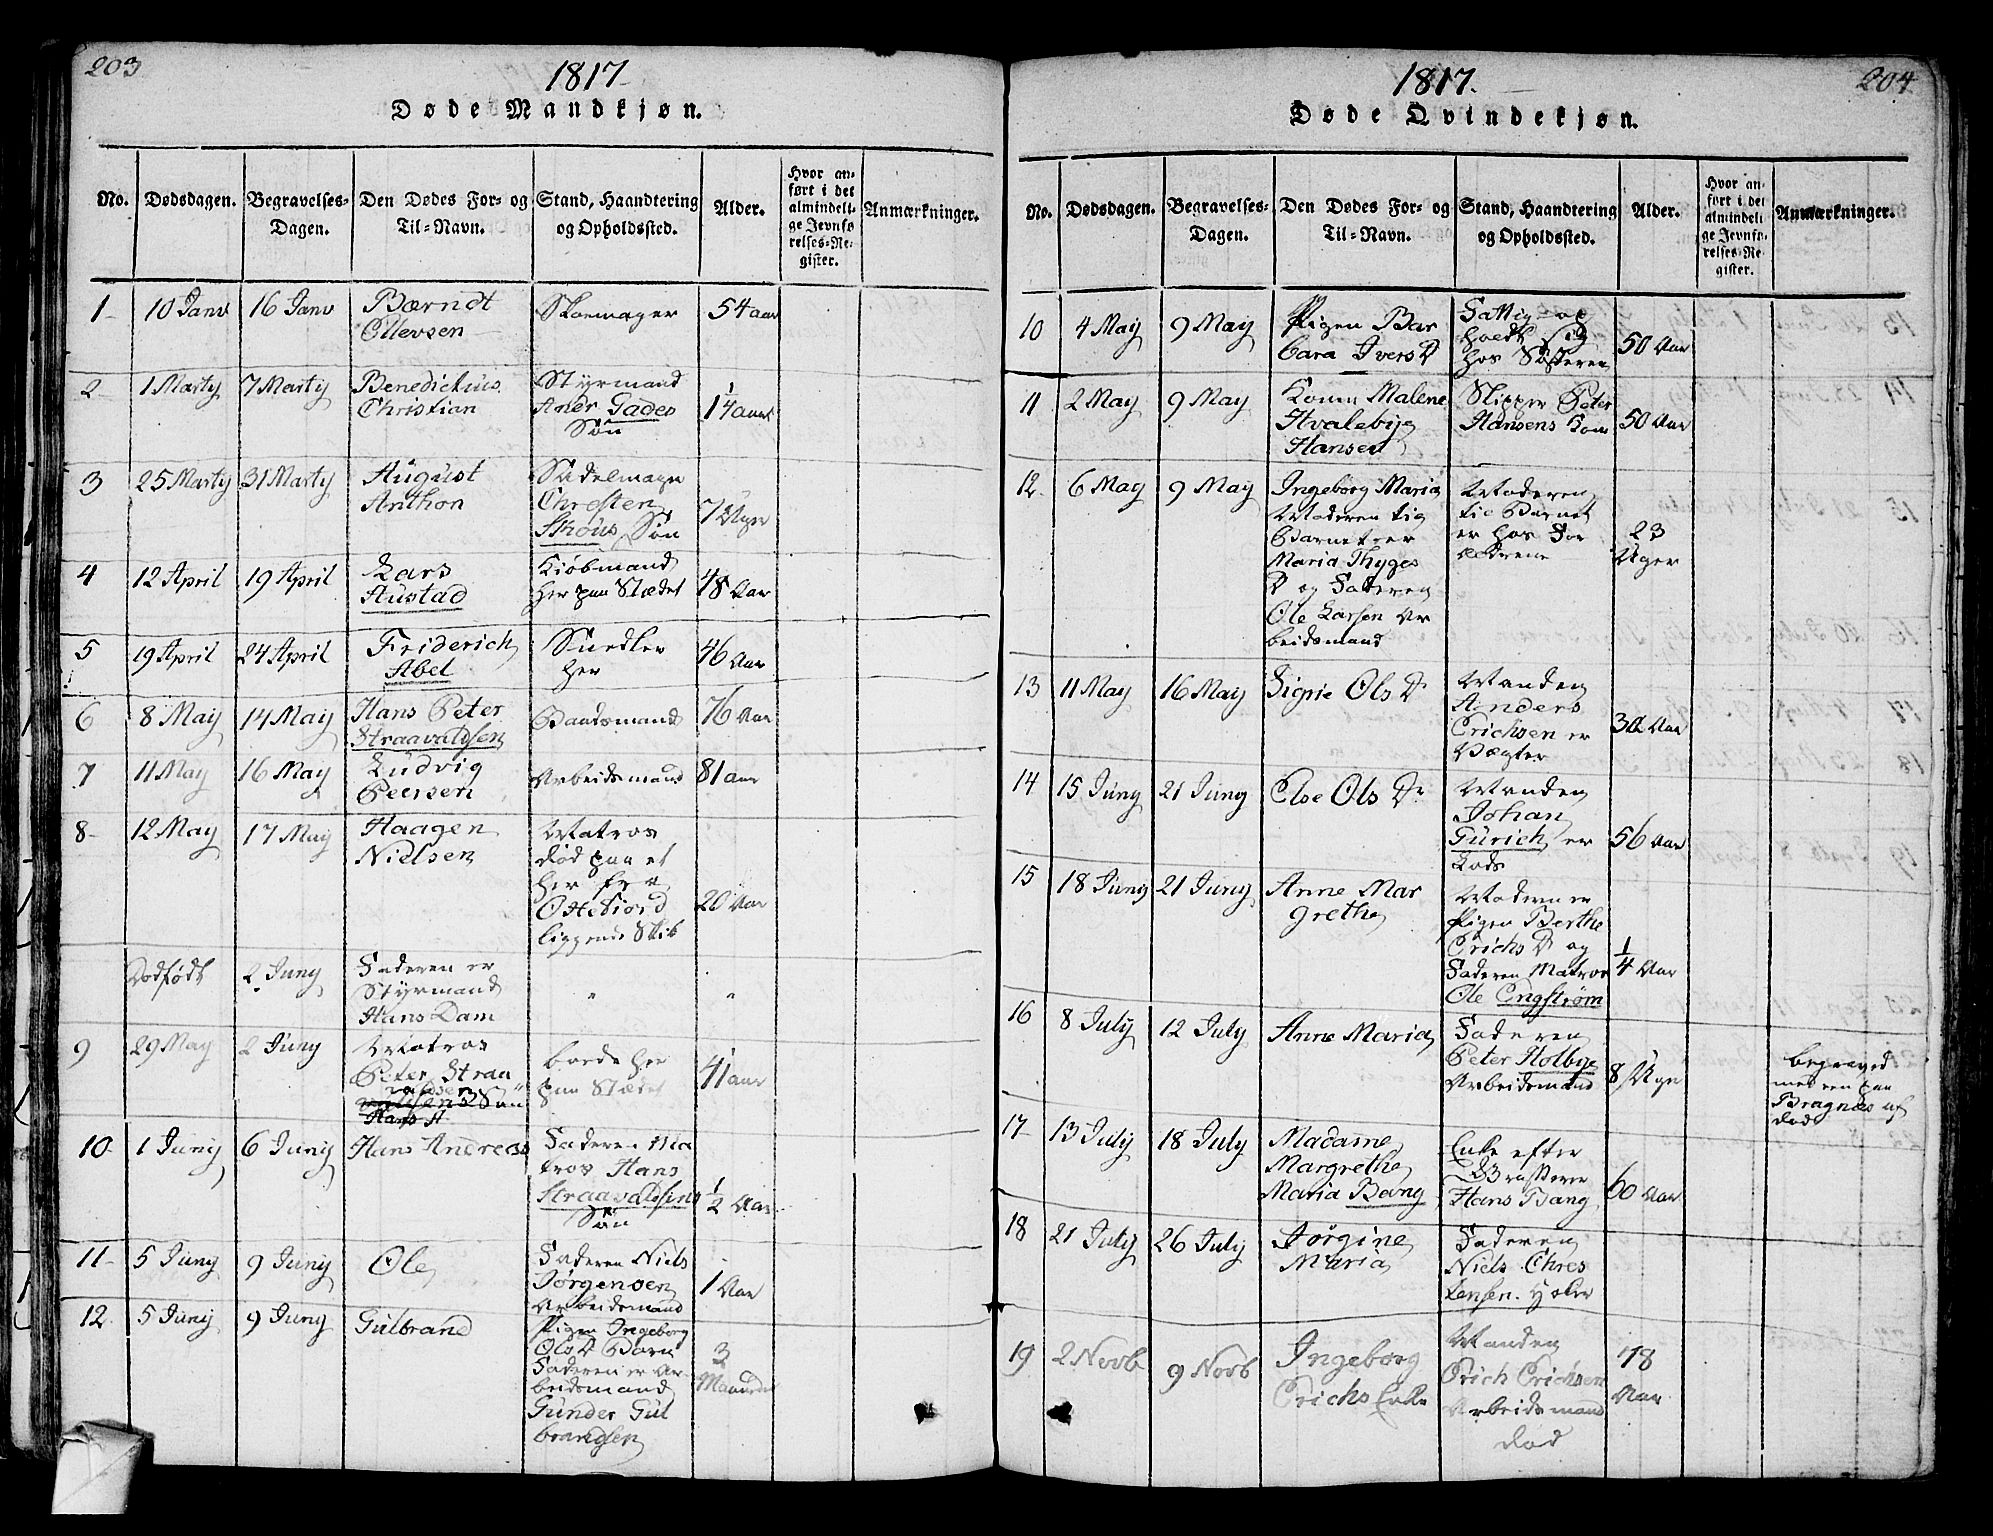 203
1817
Døde Mandkjøn.
No.
Dødsdagen.
Begravelses-
Dagen.
Den Dødes For- og
Til-Navn.
Stand, Haandtering
og Opholdssted.
Alder.
Hvor an-
ført i det
almindeli-
ge Jevnfø-
relses-Re-
gister.
Anmærkninger.
1
10 Janv
16 Janv
Bærndt
Ellevsen
Skoemager
54 aar
2
1 Marty
7 Marty
Benedictus
Christian
Styrmand
Andr Gades
Søn
1 1/4 aar
3
25 Marty
31 Marty
August
Anthon
Sadelmager
Christen
Skous Søn
7 Uger
4
12 April
19 April
Lars
Austad
Kiøbmand
her paa Stædet
48 Aar
5
19 April
24 April
Friderich
Abel
Snedker
her
46 Aar
6
8 May
14 May
Hans Peter
Straavaldsen
Baadsmand
76 Aar
7
11 May
16 May
Ludvig
Peersen
Arbeidsmand
81 aar
8
12 May
17 May
Haagen
Nielsen
Matros
død paa et
her for
liggende Skib
20 Aar
Dødfødt
2 Juny
Faderen er
Styrmand
Hans Dam
"
"
9
29 May
2 Juny
Matros
Peter Straa
boede her
paa Stædet
41 aar
10
1 Juny
6 Juny
Hans Andreas
Faderen Ma
tros Hans
Straavaldsens
Søn
1/2 Aar
11
5 Juny
9 Juny
Ole
Faderen Niels
Jørgensen
Arbeidsmand
1 Aar
12
5 Juny
9 Juny
Gulbrand
Pigen Ingeborg
Ols D Barn
Faderen er Ar
beidsmand
Gunder Gul
brandsen
3
Maaneder
204
1817.
Døde Qvindekjøn.
No.
Dødsdagen.
Begravelses-
Dagen.
Den Dødes For- og
Til-Navn.
Stand, Haandtering
og Opholdssted.
Alder.
Hvor an-
ført i det
almindeli
ge Jevnfø-
relses-Re-
gister.
Anmærkninger.
10
4 May
9 May
Pigen Bar
bara Ivers D
Fattig op
holdt sig
hos Søsteren
50 Aar
11
2 May
9 May
Konen Malene
Hvalebye
Hansen
Skipper Peter
Hansens Kone
50 Aar
12
6 May
9 May
Ingeborg Maria
Moderen til
Barnet er
Maria Thyges
D og Faderen
Ole Larsen Ar
beidsmand
Moderen
til Barnet
er hos For
ældrene
23
Uger
13
11 May
16 May
Signe Ols D
Manden
Anders
Erichsen er
Vægter
Aar
14
15 Juny
21 Juny
Else Ols D
Manden
Johan
Gurich er
Lods
56 Aar
15
18 Juny
21 Juny
Anne Mar
grethe
Moderen er
Pigen Berthe
Erichs D og
Faderen Matros
Ole Engstrøm
1/4 Aar
16
8 July
12 July
Anne Maria
Faderen
Peter Holbye
Arbeidsmand
8 Uger
begraved
men en paa
Bragnæs af
død
17
13 July
18 July
Madame
Margrethe
Maria Bang
Enke efter
Hans Bang
60 Aar
18
21 July
26 July
Jørgine
Maria
Faderen
Niels Chres
tensen
19
2 Novb
9 Novb
Ingeborg
Erichs Enke
Manden
Erich Erichsen
Arbeidsmand
død
78
Aar